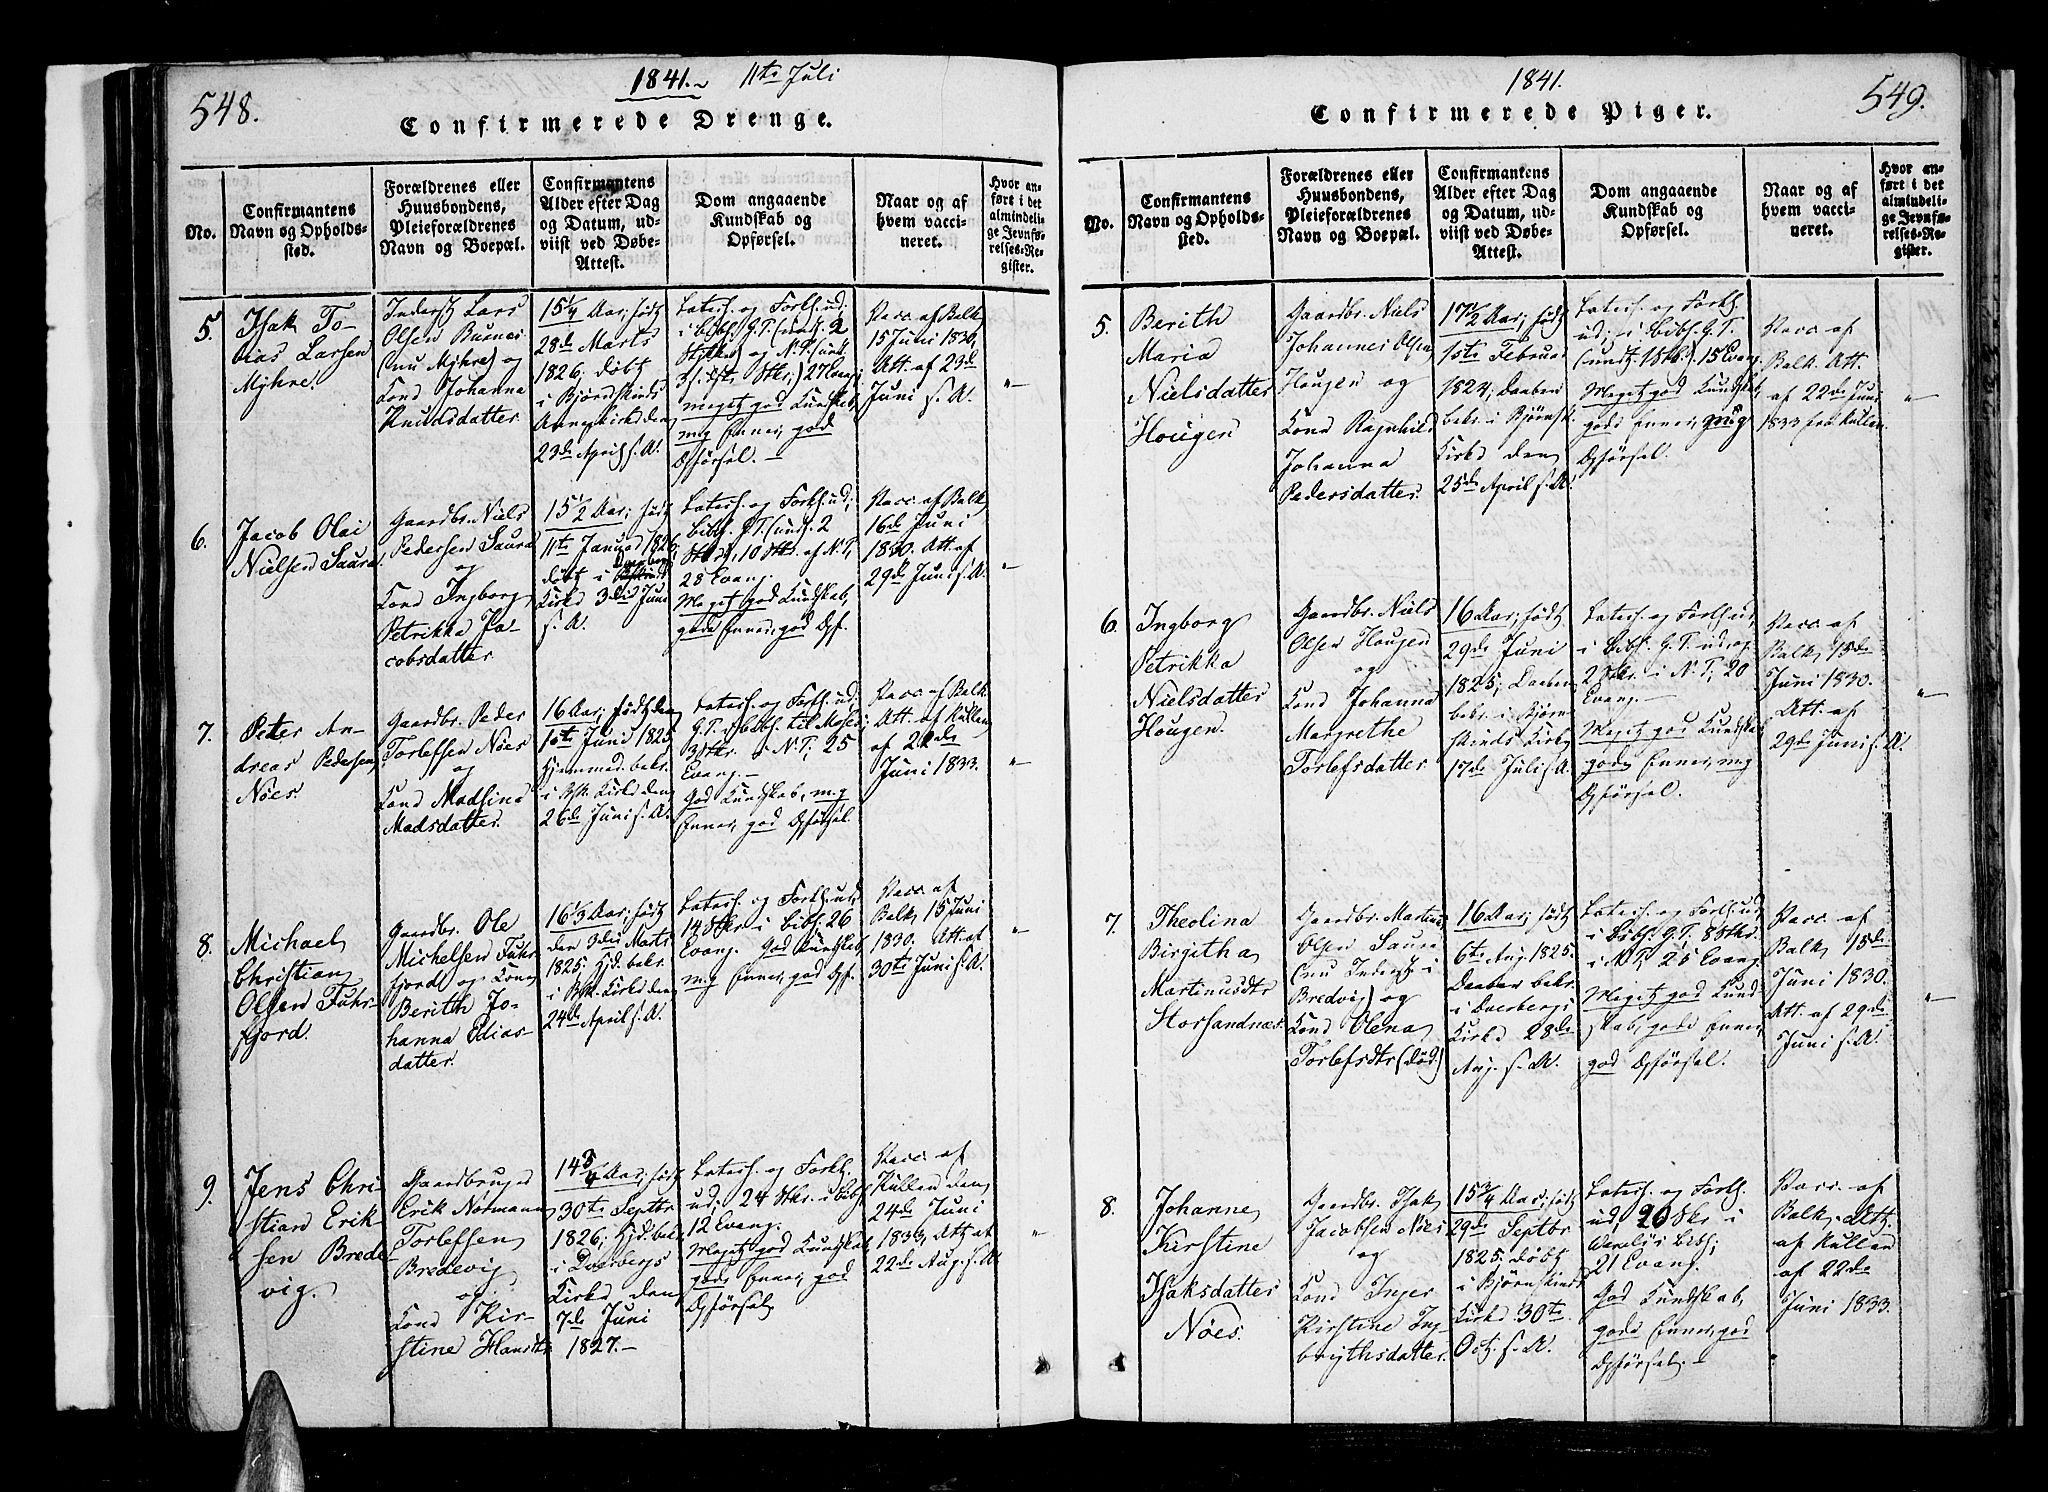 548.
1841. 11te Juli
Confirmerede Drenge.
No.
Confirmantens
Navn og Opholds-
sted.
Forældrenes eller
Huusbondens,
Pleieforældrenes
Navn og Boepæl.
Confirmantens
Alder efter Dag
og Datum, ud-
viist ved Døbe-
Attest.
Dom angaaende
Kundskab og
Opførsel.
Naar og af
hvem vacci-
neret.
Hvor an-
ført i det
almindeli-
ge Jevnfø-
relses-Re-
gister.
5.
Isak To-
bias Larsen
Myhre.
Inderst Lars
Olsen Buenes
(nu Myhre) og
Kone Johanna
Knudsdatter
15 1/4 Aar; født
28de Marts
1826; døbt
i Bjørnskinds
Annexkirke den
23de April s. A.
Catech. og Forkl. ud;
i bibl. G.T. (undt. 2
Stykker) og N.T. (undt.
3 s. Stkr.) 27 Evang.
meget god Kundskab,
mg Evner, god
Opførsel. -
Vacc. af Balk
15 Juni 1830,
Att. af 23de
Juni s. A.
"
6.
Jacob Olai
Nielsen Saura
Gaardbr. Niels
Pedersen Saura
og
Kone Ingborg
Petrikka Ja-
cobsdatter
15 1/2 Aar; født
11te Januar 1826;
døbt i Dverbergs
Kirke 3die Juni
s. A.
Catech. og Forkl. ud;
bibl. G.T. (undt. 2
Stkr.), 10 Stkr. af N.T,
28 Evang.
Meget god Kundskab,
gode Evner, god Opf.
Vacc. af Balk
16de Juni
1830. Att. af
29de Juni s. A.
"
7.
Peter An-
dreas Pedersen
Nöes.
Gaardbr. Peder
Torlefsen Nöes
og
Kone Madsina
Madsdatter.
16 Aar; født den
10te Juni 1825
Hjemmed. bekr.
i Bsk. Kirke den
26de Juni s. A.
Catech. og Forkl. ud;
G.T. i bibl. til Moses;
3 Stkr. i N.T; 25
Evang. -
God Kundskab, m.g
Evner, god Opførsel.
Vacc. af Balk.
Att. af Kullen
af 22de
Juni 1833.
"
8.
Michael
Christian
Olsen Fuhr-
fjord.
Gaardbr. Ole
Michelsen Fuhr-
fjord og Kone
Berith Jo-
hanna Elias-
datter.
16 1/3 Aar; født
den 3die Marts
1825; Hjd. bekr.
i Bsk. Kirke den
24de April s. A.
Catech. og Forkl. ud,
14 Stkr. i bibl. 26
Evang. God Kundskab,
m.g Evner, god Opf.
Vacc. af
Balk 15 Juni
1830. Att. af
30te Juni s. A.
"
9.
Jens Chri-
stian Erik-
sen Brede-
vig.
Gaardbruger
Erik Normann
Torlefsen
Bredevig
og
Kone Kir-
stine Hansdtr
14 3/4 Aar; født
30te Septbr
1826; Hjd. bekr.
i Dverbergs
Kirke den
7de Juni
1827. -
Catech. og Forkl.
ud; 24 Stkr. i bibl.
12 Evang.
Meget god Kundskab,
gode Evner, god
Opførsel
Vacc. af
Kullen den
24de Juni
1833, Att. af
22de Aug. s. A
"
549.
1841.
Confirmerede Piger.
No.
Confirmantens
Navn og Opholds-
sted.
Forældrenes eller
Huusbondens,
Pleieforældrenes
Navn og Boepæl.
Confirmantens
Alder efter Dag
og Datum, ud-
viist ved Døbe-
Attest.
Dom angaaende
Kundskab og
Opførsel.
Naar og af
hvem vacci-
neret.
Hvor an-
ført i det
almindeli-
ge Jevnfø-
relses-Re-
gister.
5.
Berith
Maria
Nielsdatter
Hougen
Gaardbr. Niels
Johannes Olsen
Hougen og
Kone Ragnhild
Johanna
Pedersdatter.
17 1/2 Aar; født
1ste Februar
1824; Daaben
bekr. i Bjørnsk.
Kirke den
25de April s. A.
Catech. og Forkl.
ud; i bibl. G.T.
15 Evang.
Meget god Kundskab,
gode Evner,
Opførsel.
Vacc. af
Balk Att.
af 22de Juni
1833 fra Kullen.
"
6.
Ingborg
Petrikka
Nielsdatter
Hougen.
Gaardbr. Niels
Olsen Hougen
og
Kone Johanna
Margrethe
Torlefsdatter
16 Aar; født
29de Juni
1825; Daaben
bekr. i Bjørn-
skinds Kirke
17de Juli s. A.
Catech. og Forkl. ud,
i bibl. G.T. ud, og
2 Stkr. i N.T; 20
Evang. -
Meget god Kundskab
gode Evner, m.g
Opførsel.
Vacc. af
Balk 15de
Juni 1830.
Att. af
29de Juni s. A.
"
7.
Theolina
Birgitha
Martinusdtr
Storsandnæs.
Gaardbr. Martinus
Olsen Saura
(nu Inderst i
Bredvig) og
Kone Olena
Torlefsdtr (død.)
16 Aar; født
6te Aug. 1825.
Daaben bekr.
i Dverbergs
Kirke 28de
Aug. s. A.
Catech. og Forkl. ud,
i bibl. G.T. 8 Stkr.
i N.T. 25 Evang.
Meget god Kund-
skab, gode Evner,
god Opførsel.
Vacc. af
Balk 15de
Juni 1830.
Att. af 29de
Juni s. A.
"
8.
Johanne
Kirstine
Isaksdatter
Nöes.
Gaardbr. Isak
Jacobsen Nöes
og
Kone Inger
Kirstine Ing-
brigthsdatter.
15 3/4 Aar; født
29de Septbr
1825; døbt
i Bjørnskinds
Kirke 30te
Oct. s. A.
Catech. og Forkl.
ud, 20 Stkr. i
bibl;
21 Evang.
God Kundskab,
gode Evner, god
Opførsel. -
Vacc. af
Balk. Att.
af Kullen
af 22de
Juni 1833.
"